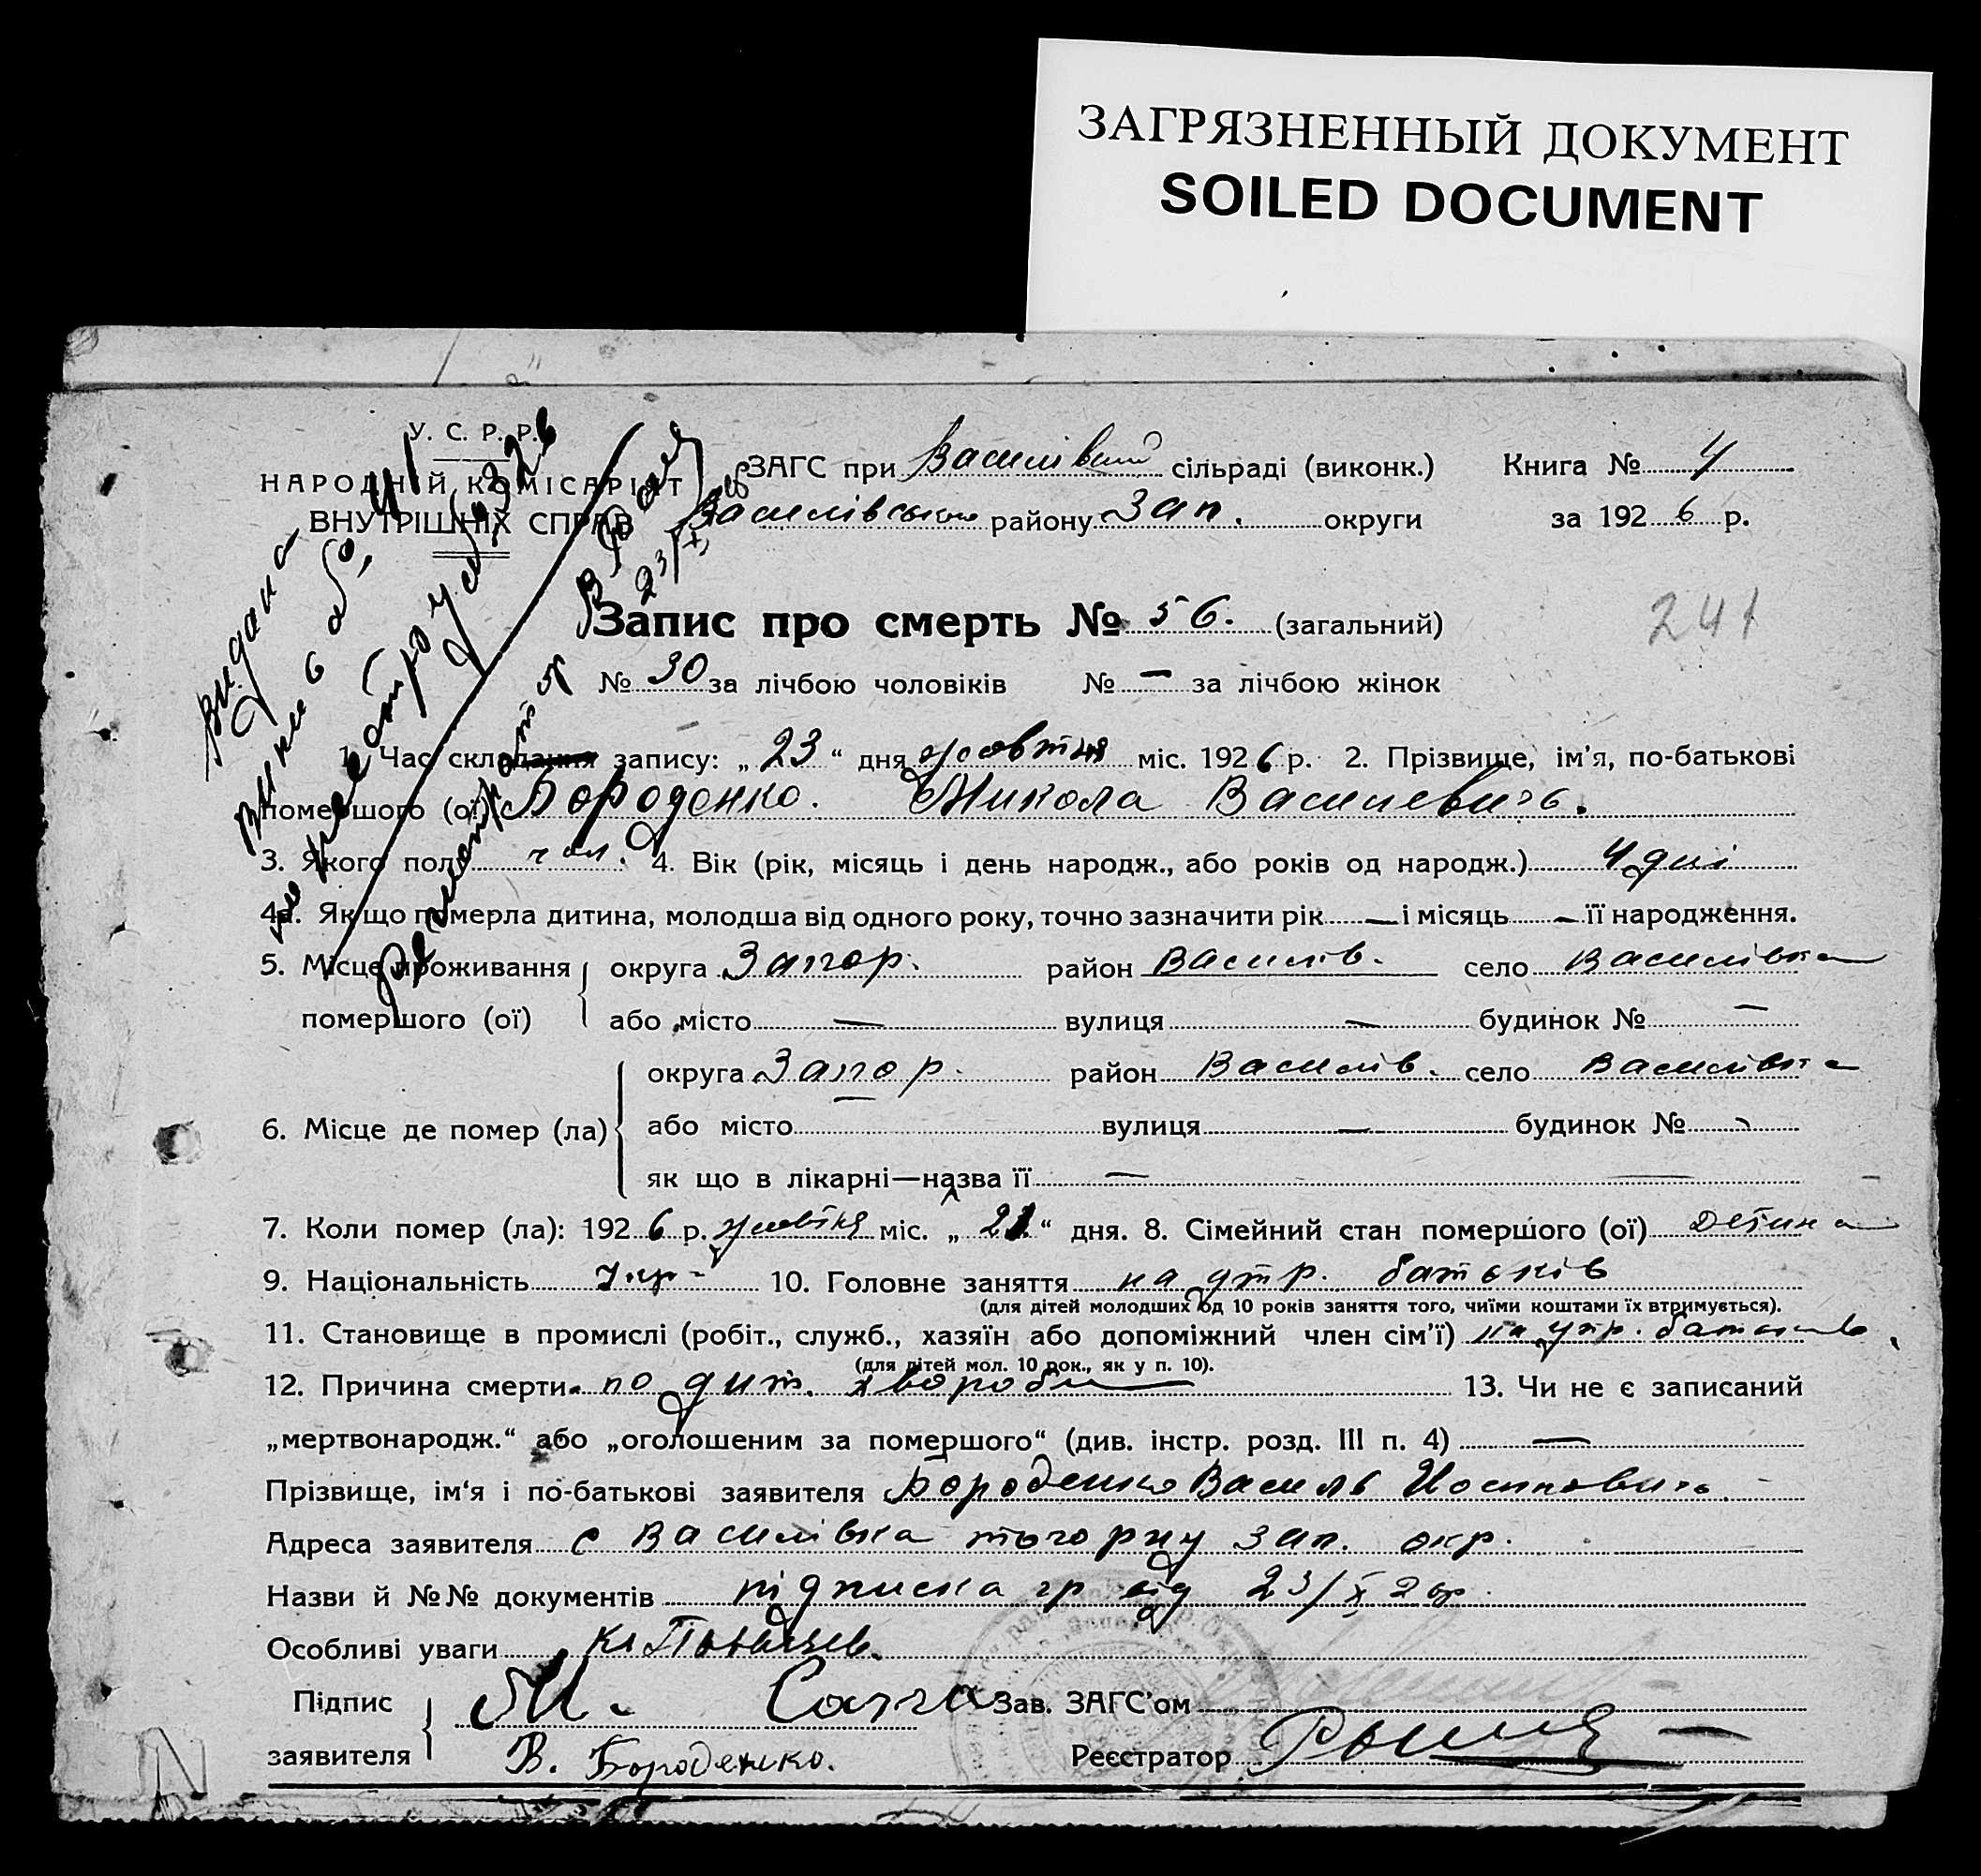 ЗАГРЯЗНЕННЫЙ ДОКУМЕНТ
SOILED DOCUMENT
У. С. Р. Р.
НАРОДНІЙ КОМІСАРІЯТ
ВНУТРІШНІХ СПРАВ
ЗАГС при Василівській сільраді (виконк.) Книга № 4
Василівського району Зап. округи за 1926 р.
Запис про смерть № 56. (загальний)
241
№ 30 за лічбою чоловіків № — за лічбою жінок
1. Час складання запису: „23“ дня жовтня міс. 1926 р. 2. Прізвище, ім’я, по-батькові
помершого (ої) Бороденко. Микола Васильевичь.
3. Якого полу чол. 4. Вік (рік, місяць і день народж., або років од народж.) 4 дні
4а. Якщо померла дитина, молодша від одного року, точно зазначити рік — і місяць — її народження.
5. Місце проживання округа Запор. район Василів. село Василівка
помершого (ої) або місто — вулиця — будинок № —
округа Запор. район Василів. село Василівка
6. Місце де помер (ла) або місто — вулиця — будинок № —
як що в лікарні—назва її — —
7. Коли помер (ла): 1926 р. жовтня міс. „21“ дня. 8. Сімейний стан помершого (ої) детина
9. Національність Укр- 10. Головне заняття на утр. батьків
(для дітей молодших од 10 років заняття того, чиїми коштами їх втримується).
11. Становище в промислі (робіт., служб., хазяїн або допоміжний член сім’ї) на утр. батьків
(для дітей мол. 10 рок., як у п. 10).
12. Причина смерти по дит. хвороби 13. Чи не є записаний
„мертвонародж.“ або „оголошеним за помершого“ (див. інстр. розд. III п. 4) —
Прізвище, ім‘я і по-батькові заявителя Бороденко Василь Иосиповичь
Адреса заявителя с Василівка того рну Зап. окр.
Назви й №№ документів підписка гр від 23/X 26р.
Особливі уваги
Підпис Зав. ЗАГС’ом
заявителя В. Бороденко. Реєстратор
Видана